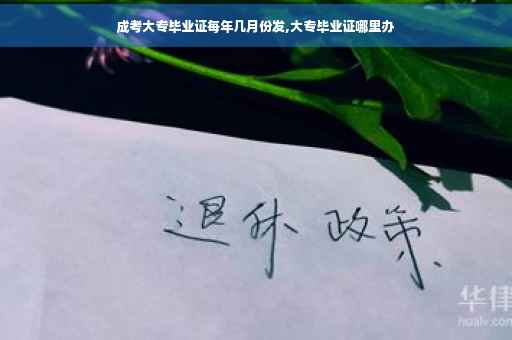 成考大专毕业证每年几月份发,大专毕业证哪里办
退休 政策
华律
hualv.com